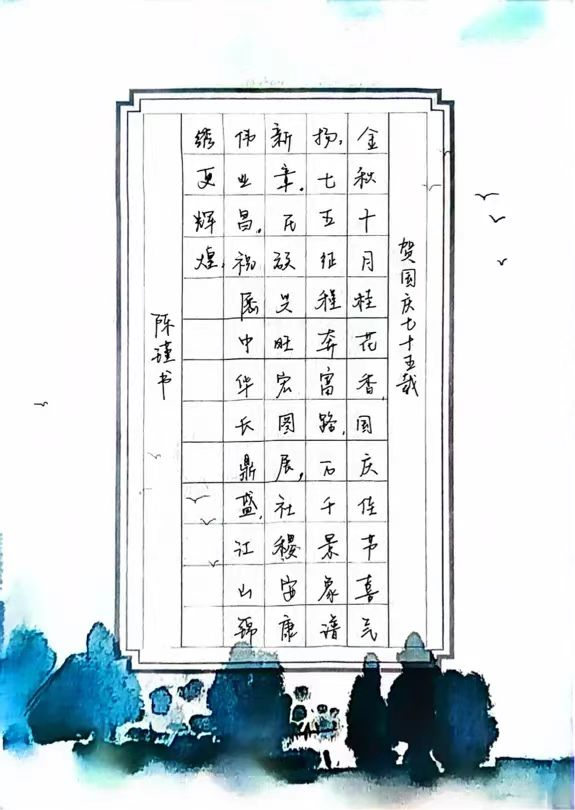 贺国庆七十五载
金秋十月桂花香,国庆佳节喜气
扬,七五征程奔富路,万千景象谱
新章。民族兴旺宏图展,社稷安康
伟业昌。祝愿中华长鼎盛,江山锦
绣更辉煌。
陈瑾书